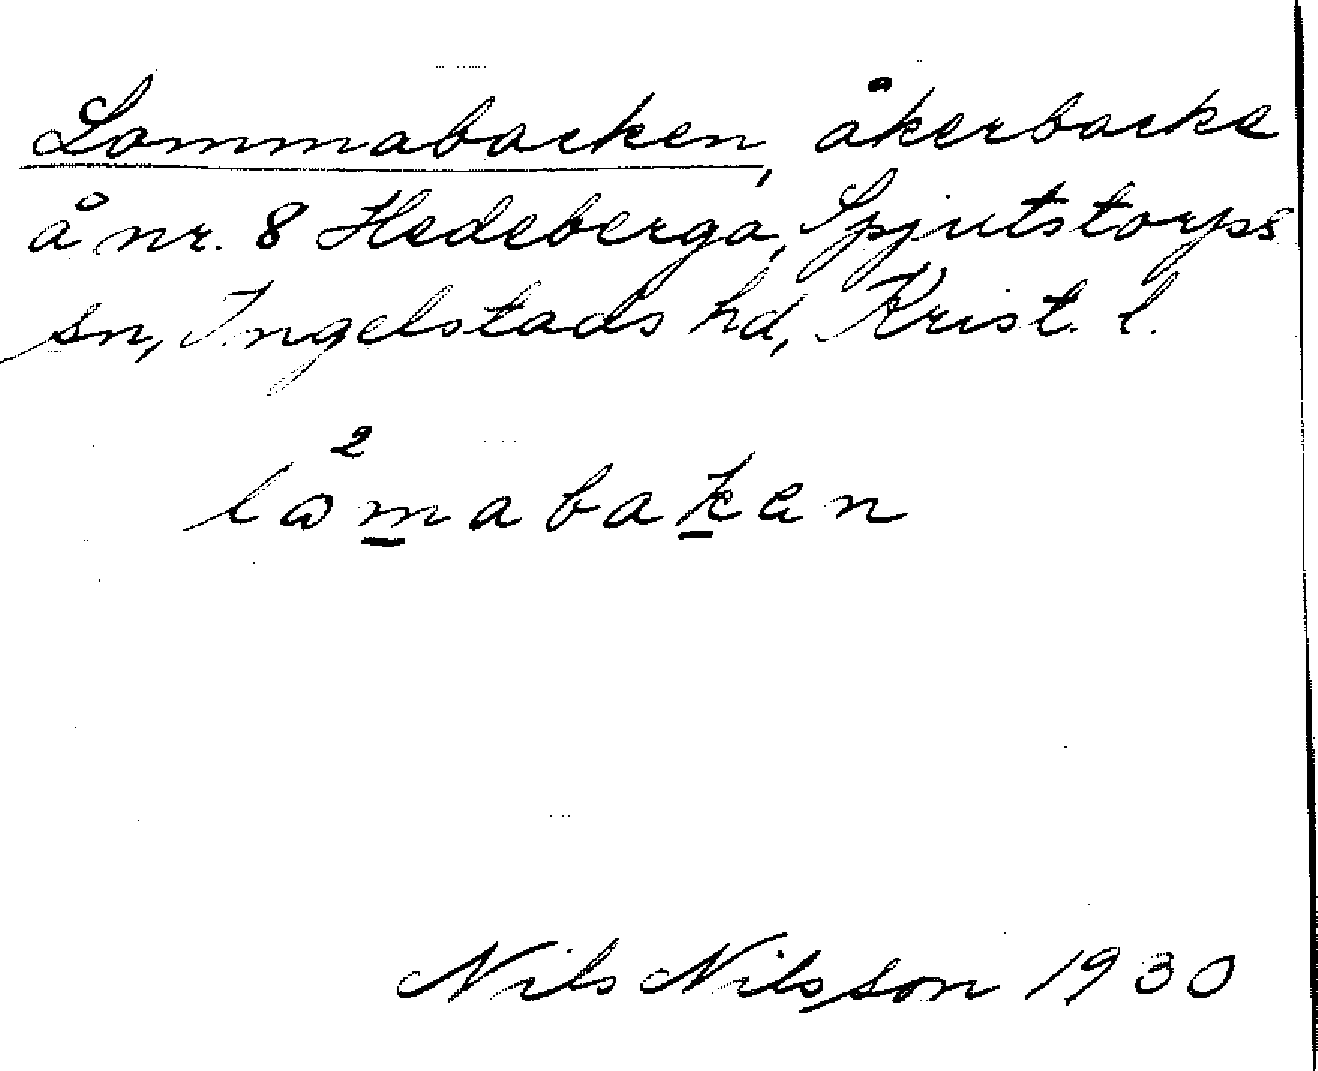 Lommabacken, åkerbacke
å nr. 8 Hedeberga, Spjutstorps
sn, Ingelstads hd, Krist. l.
2
låmabaken
Nils Nilsson 1930